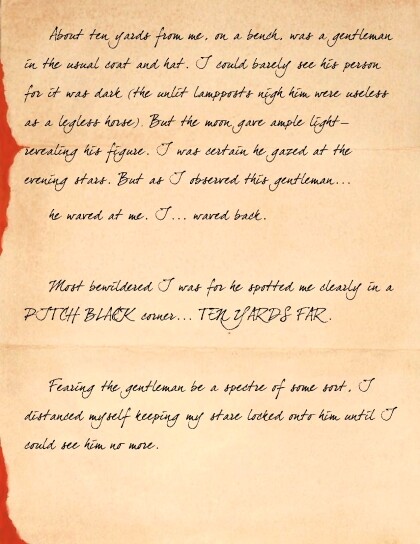 About ten yards from me, on a bench, was a gentleman
in the usual coat and hat. I could barely see his person
for it was dark (the unlit lampposts nigh him were useless
as a legless horse). But the moon gave ample light—
revealing his figure. I was certain he gazed at the
evening stars. But as I observed this gentleman...
he waved at me. I... waved back.
Most bewildered I was for he spotted me clearly in a
PITCH BLACK corner... TEN YARDS FAR.
Fearing the gentleman be a spectre of some sort, I
distanced myself keeping my stare locked onto him until I
could see him no more.